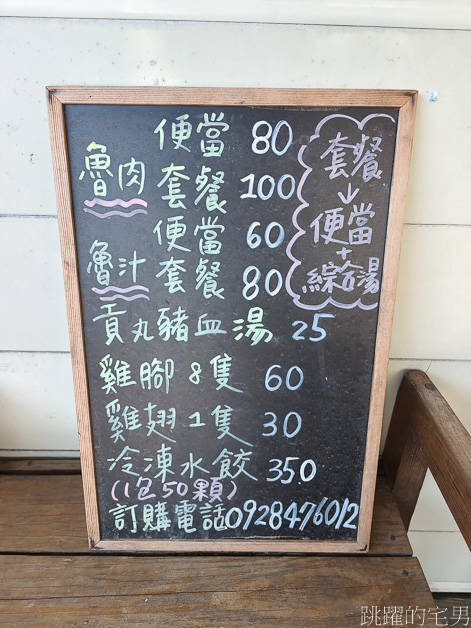 魯肉
便當 80
套餐 100
魯汁
便當 60
套餐 80
貢丸豬血湯 25
雞腳8隻 60
雞翅1隻 30
冷凍水餃 350
(1包50顆)
訂購電話0928476012
套餐
↓
便當
+
綜合湯
跳躍的宅男